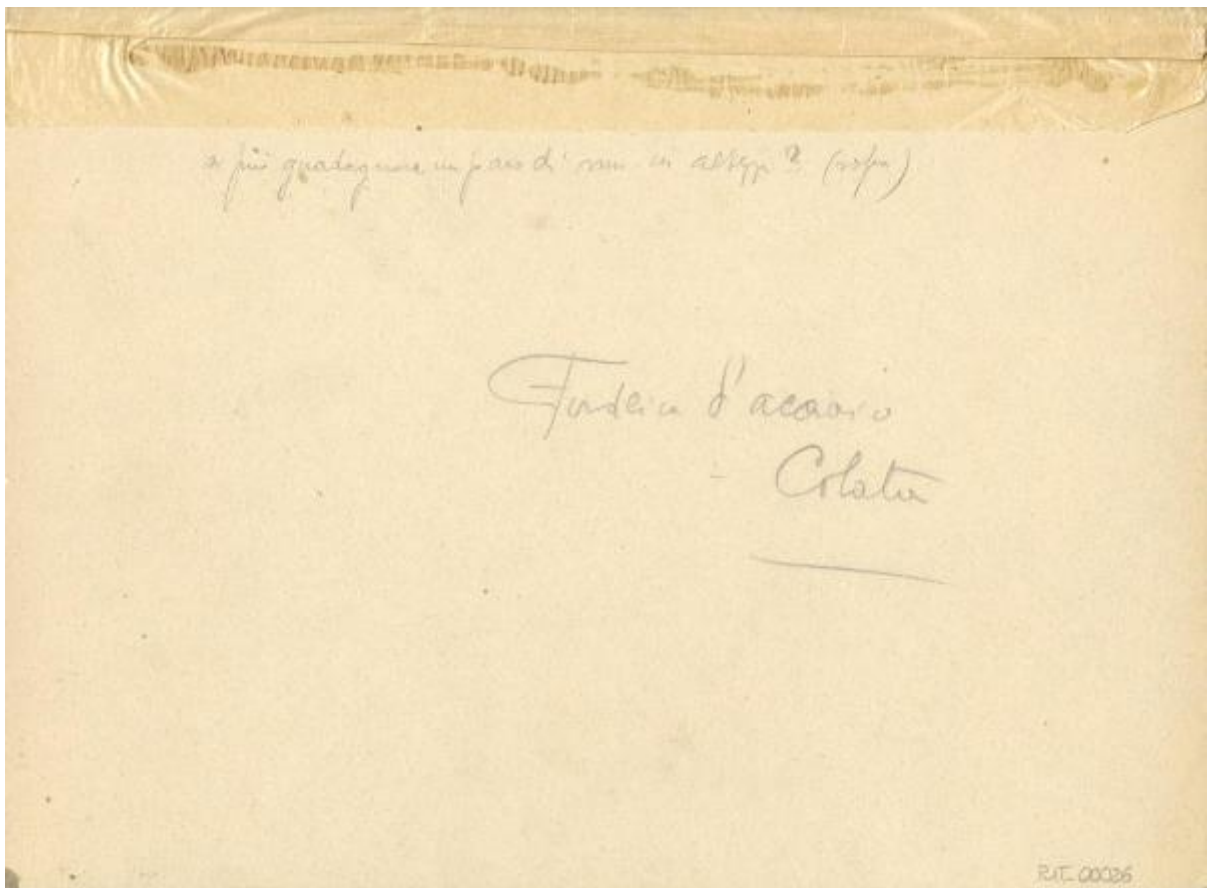 si può guadagnare un paio di mm in altezza? (sopra)
Fonderia d'acciaio
- Colata
RIT_00026